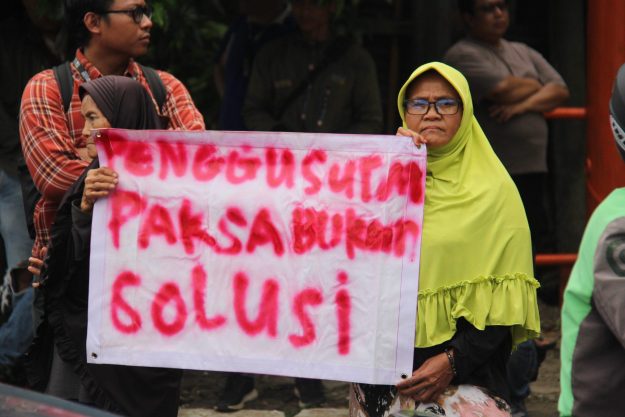 PENGGUSURAN
PAKSA BUKAN
SOLUSI